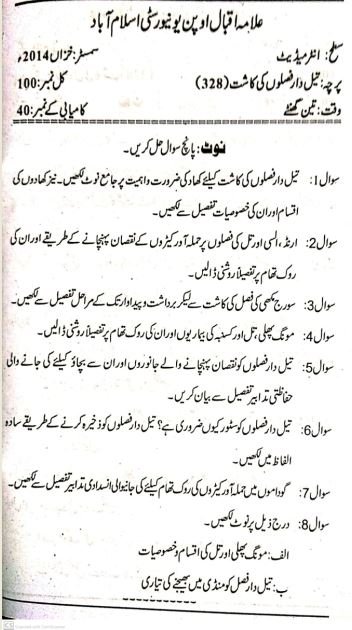 علامہ اقبال اوپن یونیورسٹی اسلام آباد
سطح: انٹرمیڈیٹ سمسٹر: خزاں 2014ء
پرچہ: تیل دار فصلوں کی کاشت (328) کل نمبر: 100
وقت: تین گھنٹے کامیابی کے نمبر: 40
نوٹ: پانچ سوال حل کریں۔
سوال 1: تیل دار فصلوں کی کاشت کیلئے کھاد کی ضرورت و اہمیت پر جامع نوٹ لکھیں۔ نیز کھادوں کی
اقسام اور ان کی خصوصیات تفصیل سے لکھیں۔
سوال 2: ارنڈ، السی اور تل کی فصلوں پر حملہ آور کیڑوں کے نقصان پہنچانے کے طریقے اور ان کی
روک تھام پر تفصیلاً روشنی ڈالیں۔
سوال 3: سورج مکھی کی فصل کی کاشت سے لیکر برداشت و پیداوار تک کے مراحل تفصیل سے لکھیں۔
سوال 4: مونگ پھلی، تل اور کسنبہ کی بیماریوں اور ان کی روک تھام پر تفصیلاً روشنی ڈالیں۔
سوال 5: تیل دار فصلوں کو نقصان پہنچانے والے جانوروں اور ان سے بچاؤ کیلئے کی جانے والی
حفاظتی تدابیر تفصیل سے بیان کریں۔
سوال 6: تیل دار فصلوں کو سٹور کیوں ضروری ہے؟ تیل دار فصلوں کو ذخیرہ کرنے کے طریقے سادہ
الفاظ میں لکھیں۔
سوال 7: گوداموں میں حملہ آور کیڑوں کی روک تھام کیلئے کی جانیوالی انسدادی تدابیر تفصیل سے لکھیں۔
سوال 8: درج ذیل پر نوٹ لکھیں۔
الف: مونگ پھلی اور تل کی اقسام و خصوصیات
ب: تیل دار فصل کو منڈی میں بھیجنے کی تیاری
CS